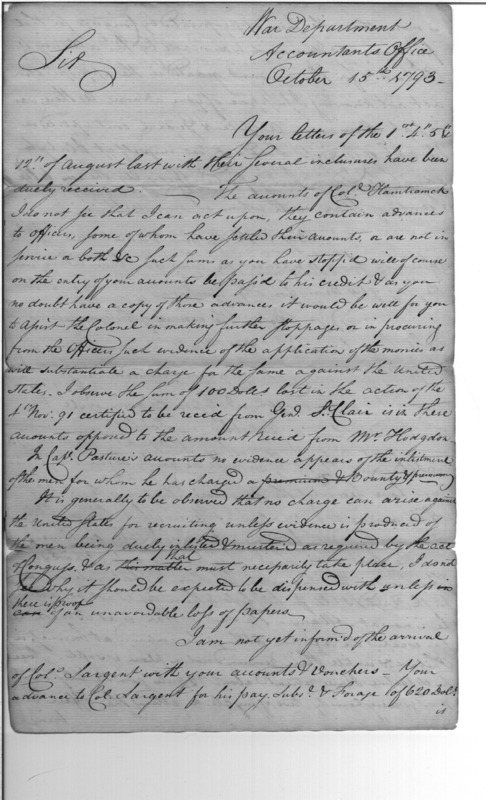 War Department
Accountants Office
October 15th 1793 -
Sir
Your letters of the 1st 4" 5 &
12" of August last with their several inclosures have been
duely received. — The accounts of Colo. Hamtramck
I do not see that I can act upon, they contain advances
to officers, some of whom have settled their accounts, or are not in
service or both &c Such sums as you have stopp'd will of course
on the entry of your accounts be pass'd to his credit & as you
no doubt have a copy of those advances it would be well for you
to assist the Colonel in making further stoppages or in procuring
from the Officers such evidence of the application of the monies as
will substantiate a charge for the same against the United
States. I observe the sum of 100 Dolls lost in the action of the
4th Nov. 91 certified to be reced from Genl. St. Clair is in these
accounts opposed to the amount reced from Mr Hodgdon -
In Capt. Pasture's accounts no evidence appears of the inlistment
of the men for whom he has charged a premium & Bounty & premium
It is generally to be observed that no charge can arise against
the United States for recruiting unless evidence is produced of
the men being duely inlisted & muster'd as required by the act
of Congress, & as this matter that must necessarily take place, I do not
see why it should be expected to be dispensed with unless in
case there is proof of an unavoidable loss of papers
I am not yet inform'd of the arrival
of Colo. Sargent with your accounts & vouchers - Your
advance to Col. Sargent for his pay, Subs. & Forage of 620 Dols.
is